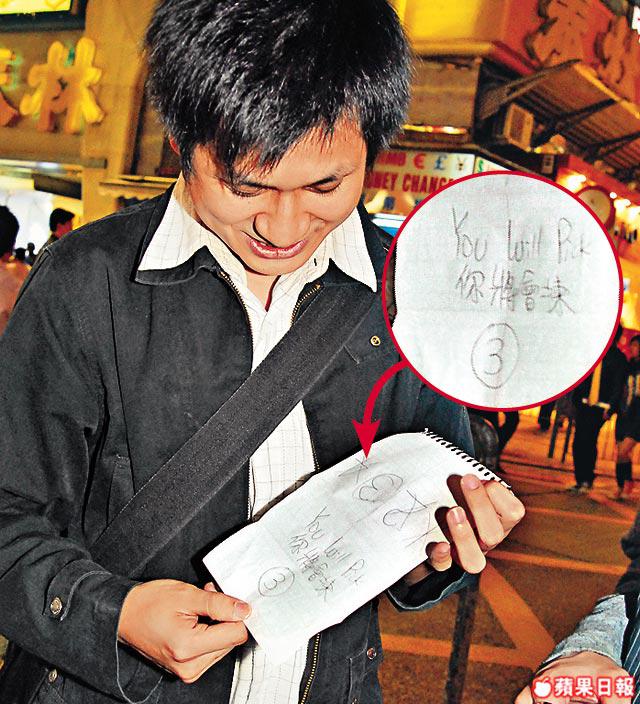 林
MB € £ ¥ $
NEY CHANGE
You Will Pick
你將會揀
③
You Will Pick
你將會揀
③
蘋果日報